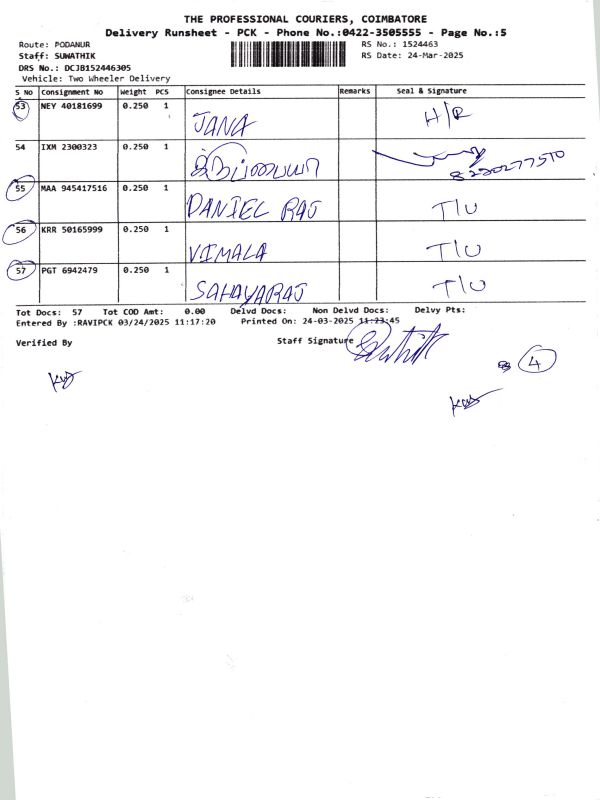 THE PROFESSIONAL COURIERS, COIMBATORE
Delivery Runsheet - PCK - Phone No.:0422-3505555 - Page No.:5
Route: PODANUR
RS No.: 1524463
Staff: SUWATHIK
RS Date: 24-Mar-2025
DRS No.: DCJB152446305
Vehicle: Two Wheeler Delivery
S No Consignment No Weight PCS Consignee Details Remarks Seal & Signature
53 NEY 40181699 0.250 1 JANA H/R
54 IXM 2300323 0.250 1
55 MAA 945417516 0.250 1 DANIEL RAJ T/U
56 KRR 50165999 0.250 1 VIMALA T/U
57 PGT 6942479 0.250 1 SAHAYARAJ T/U
Tot Docs: 57 Tot COD Amt: 0.00 Delvd Docs: Non Delvd Docs: Delvy Pts:
Entered By :RAVIPCK 03/24/2025 11:17:20 Printed On: 24-03-2025 11:23:45
Verified By Staff Signature
4